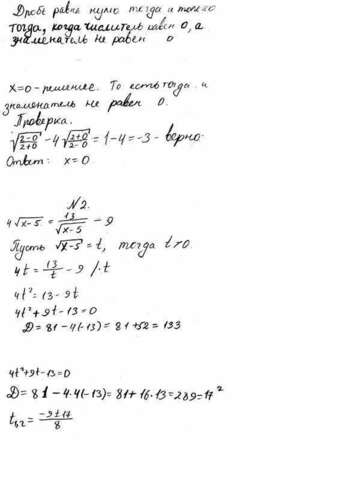 Дробь равна нулю тогда и только
тогда, когда числитель равен 0, а
знаменатель не равен 0
x=0 - решение. То есть тогда и
знаменатель не равен 0.
Проверка.
√((2-0)/(2+0)) - 4√((2+0)/(2-0)) = 1-4=-3 - верно.
Ответ: x=0
№2.
4√(x-5) = 13/√(x-5) - 9
Пусть √(x-5) = t, тогда t>0
4t = 13/t - 9 /·t
4t² = 13 - 9t
4t² + 9t - 13 = 0
D = 81 - 4(-13) = 81 + 52 = 133
4t²+9t-13=0
D = 81 - 4·4(-13) = 81 + 16·13 = 289 = 17²
t₁,₂ = (-9±17)/8